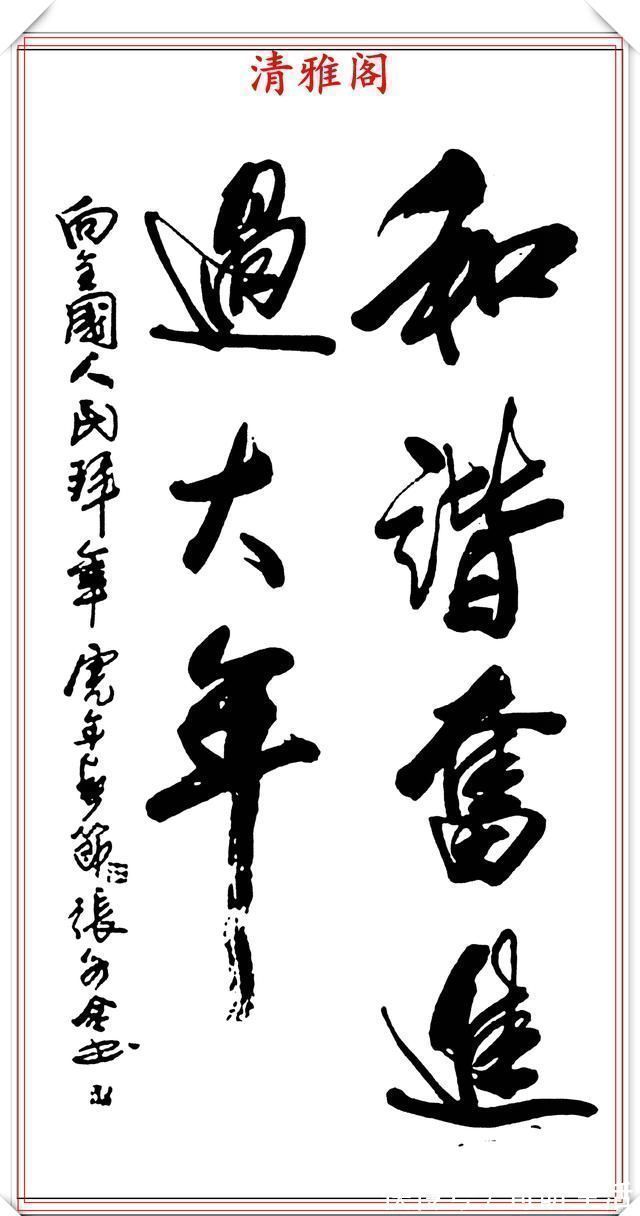 清雅阁
和谐奮進
過大年
向全國人民拜年 虎年春節 張